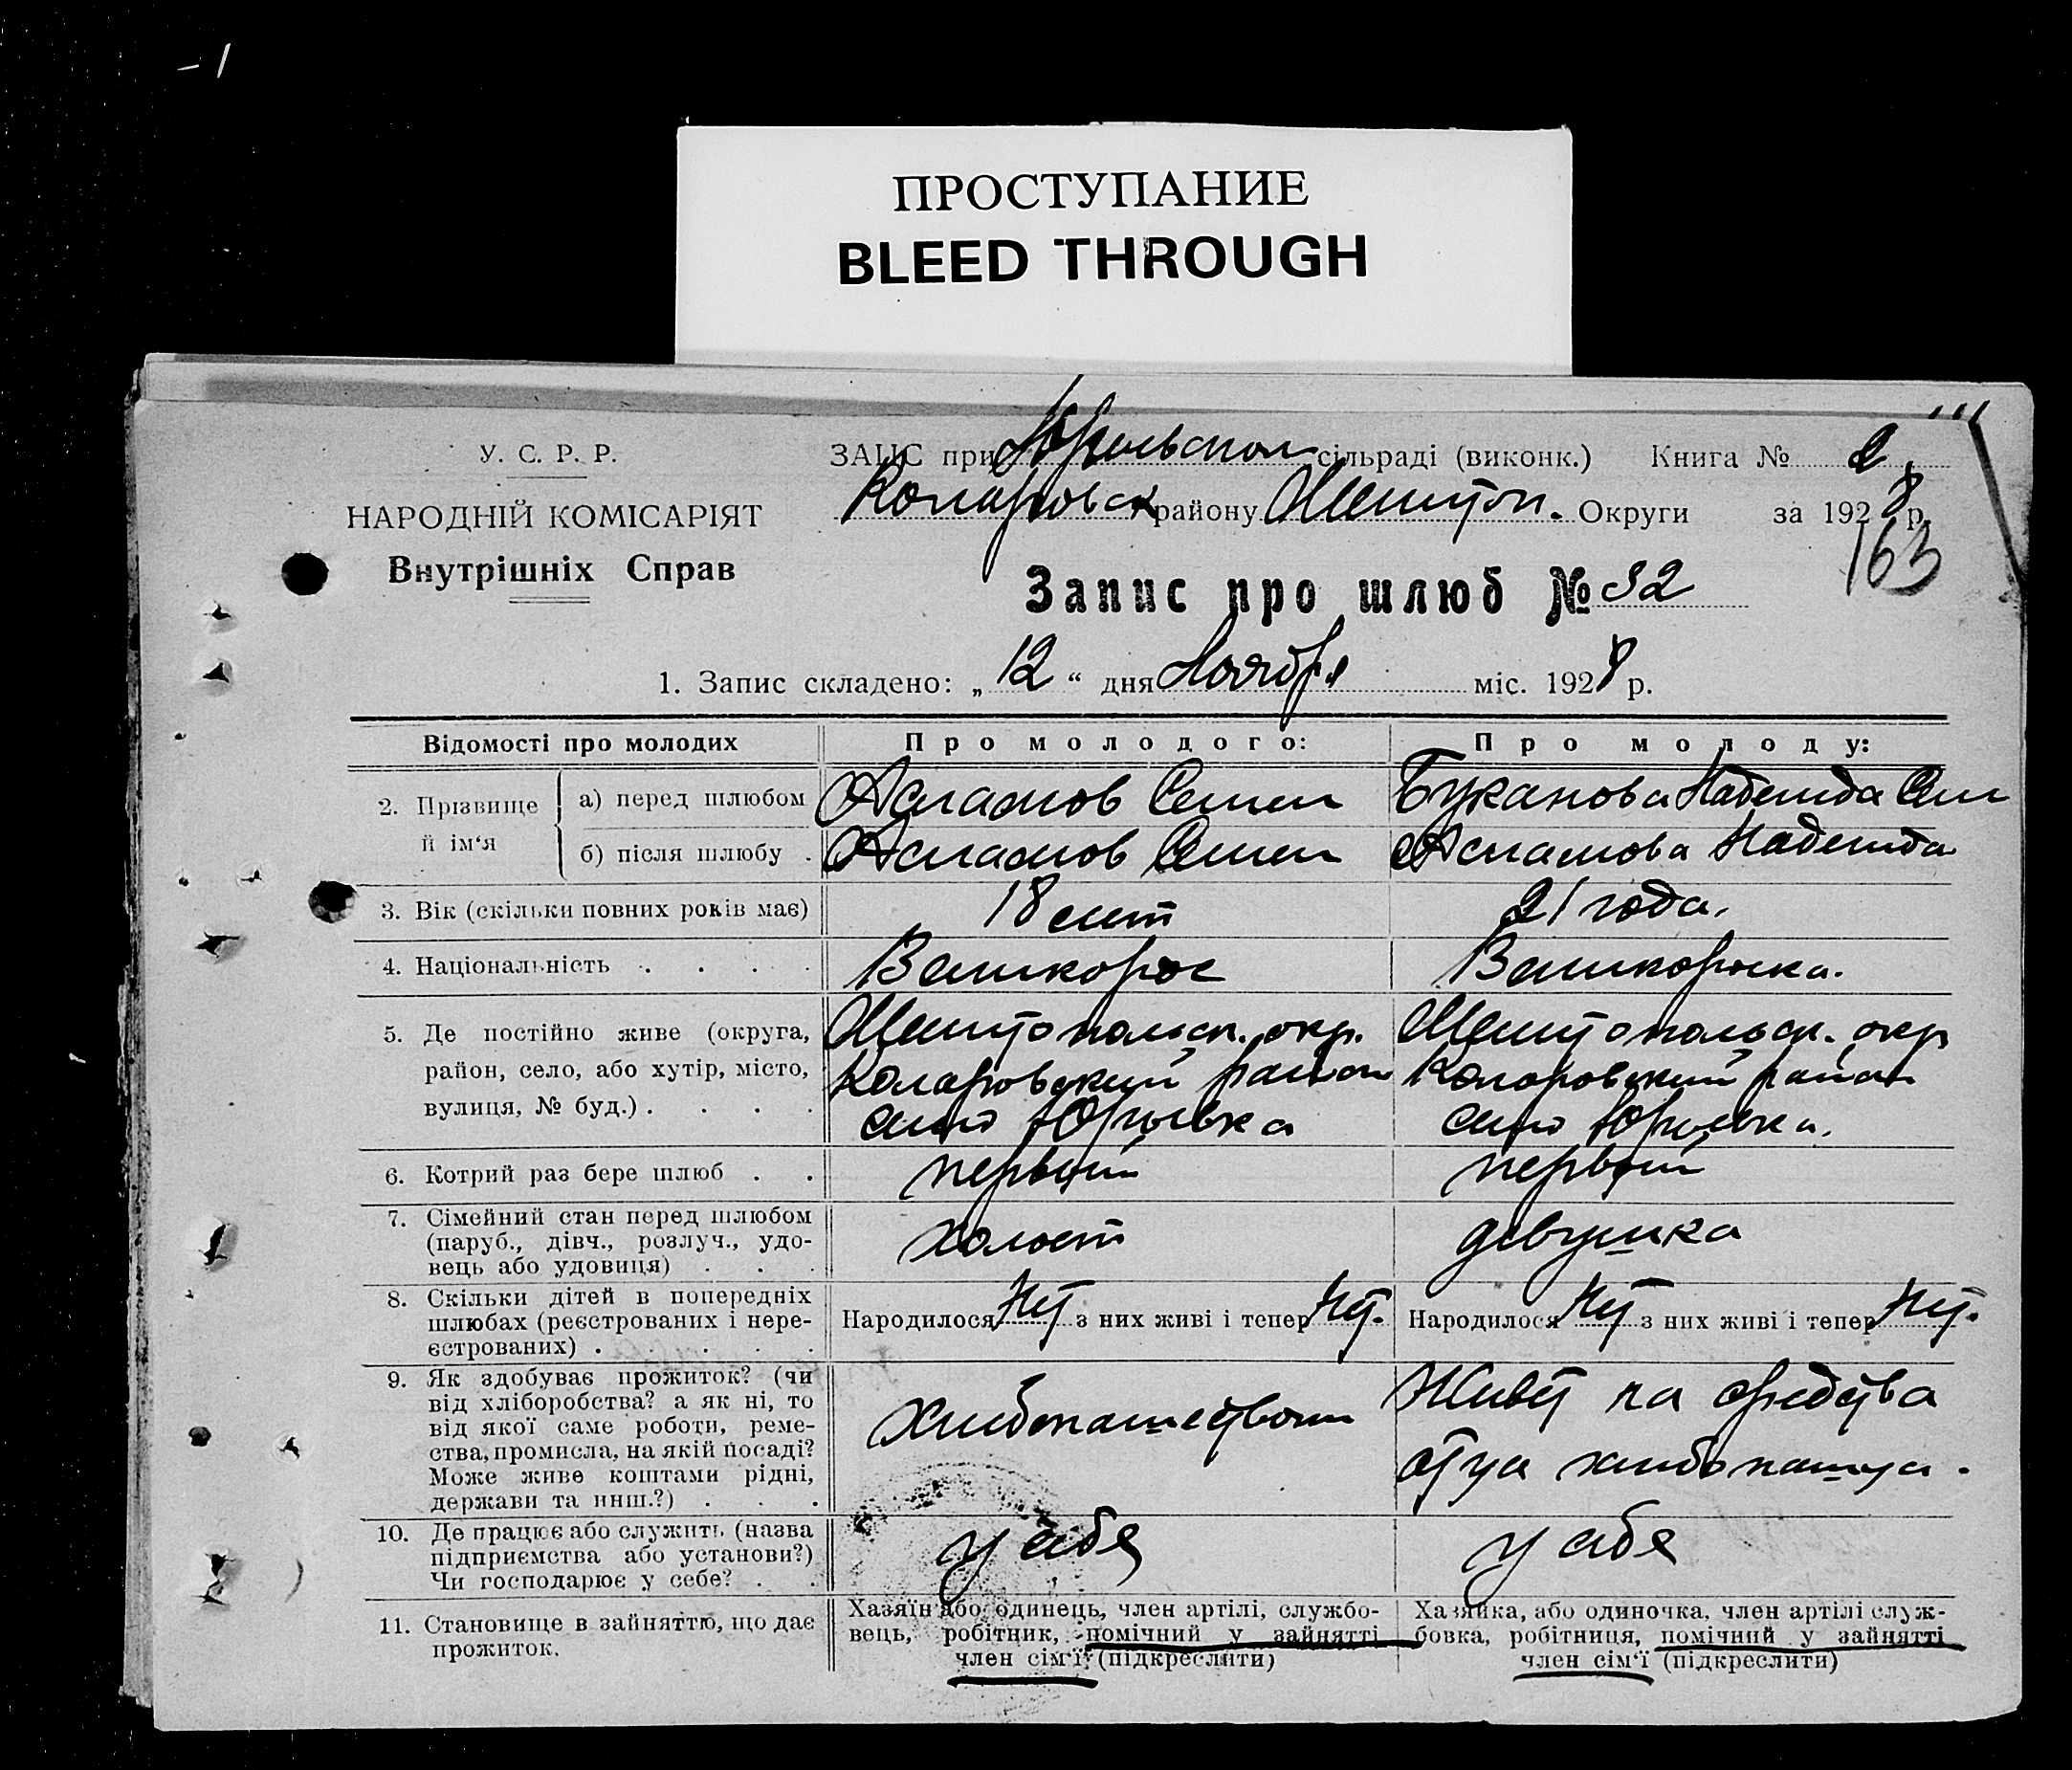 ПРОСТУПАНИЕ
BLEED THROUGH
У. С. Р. Р.
НАРОДНІЙ КОМІСАРІЯТ
Внутрішніх Справ
ЗАГС при Юрьевском сільраді (виконк.) Книга № 2
Коларовск району Мелитоп. Округи за 1928 р.
163
Запис про шлюб № 32
1. Запис складено: „ 12 “ дня Ноября міс. 1928 р.
Відомості про молодих Про молодого: Про молоду:
2. Прізвище й ім'я
а) перед шлюбом Асламов Семен Буканова Надежда Сем
б) після шлюбу . Асламов Семен Асламова Надежда
3. Вік (скільки повних років має) 18 лет 21 года.
4. Національність . . . . Великорос Великороска.
5. Де постійно живе (округа,
район, село, або хутір, місто,
вулиця, № буд.) . . . .
Мелитопольск. окр.
Коларовский район
село Юрьевка
Мелитопольск. окр
Коларовский район
село Юрьевка.
6. Котрий раз бере шлюб . . первый первый
7. Сімейний стан перед шлюбом
(паруб., дівч., розлуч., удо-
вець або удовиця) . . .
холост девушка
8. Скільки дітей в попередніх
шлюбах (реєстрованих і нере-
єстрованих) . . . . .
Народилося Нет з них живі і тепер Нет.
Народилося Нет з них живі і тепер Нет.
9. Як здобуває прожиток? (чи
від хліборобства? а як ні, то
від якої саме роботи, реме-
ства, промисла, на якій посаді?
Може живе коштами рідні,
держави та инш.?) . . .
Хлебопашеством
Живет на средства
отца хлебопашца.
10. Де працює або служить (назва
підприємства або установи?)
Чи господарює у себе? . .
у себя у себя
11. Становище в зайняттю, що дає
прожиток.
Хазяїн або одинець, член артілі, службо-
вець, робітник, помічний у зайнятті
член сім'ї (підкреслити)
Хазяйка, або одиночка, член артілі служ-
бовка, робітниця, помічний у зайнятті
член сім'ї (підкреслити)